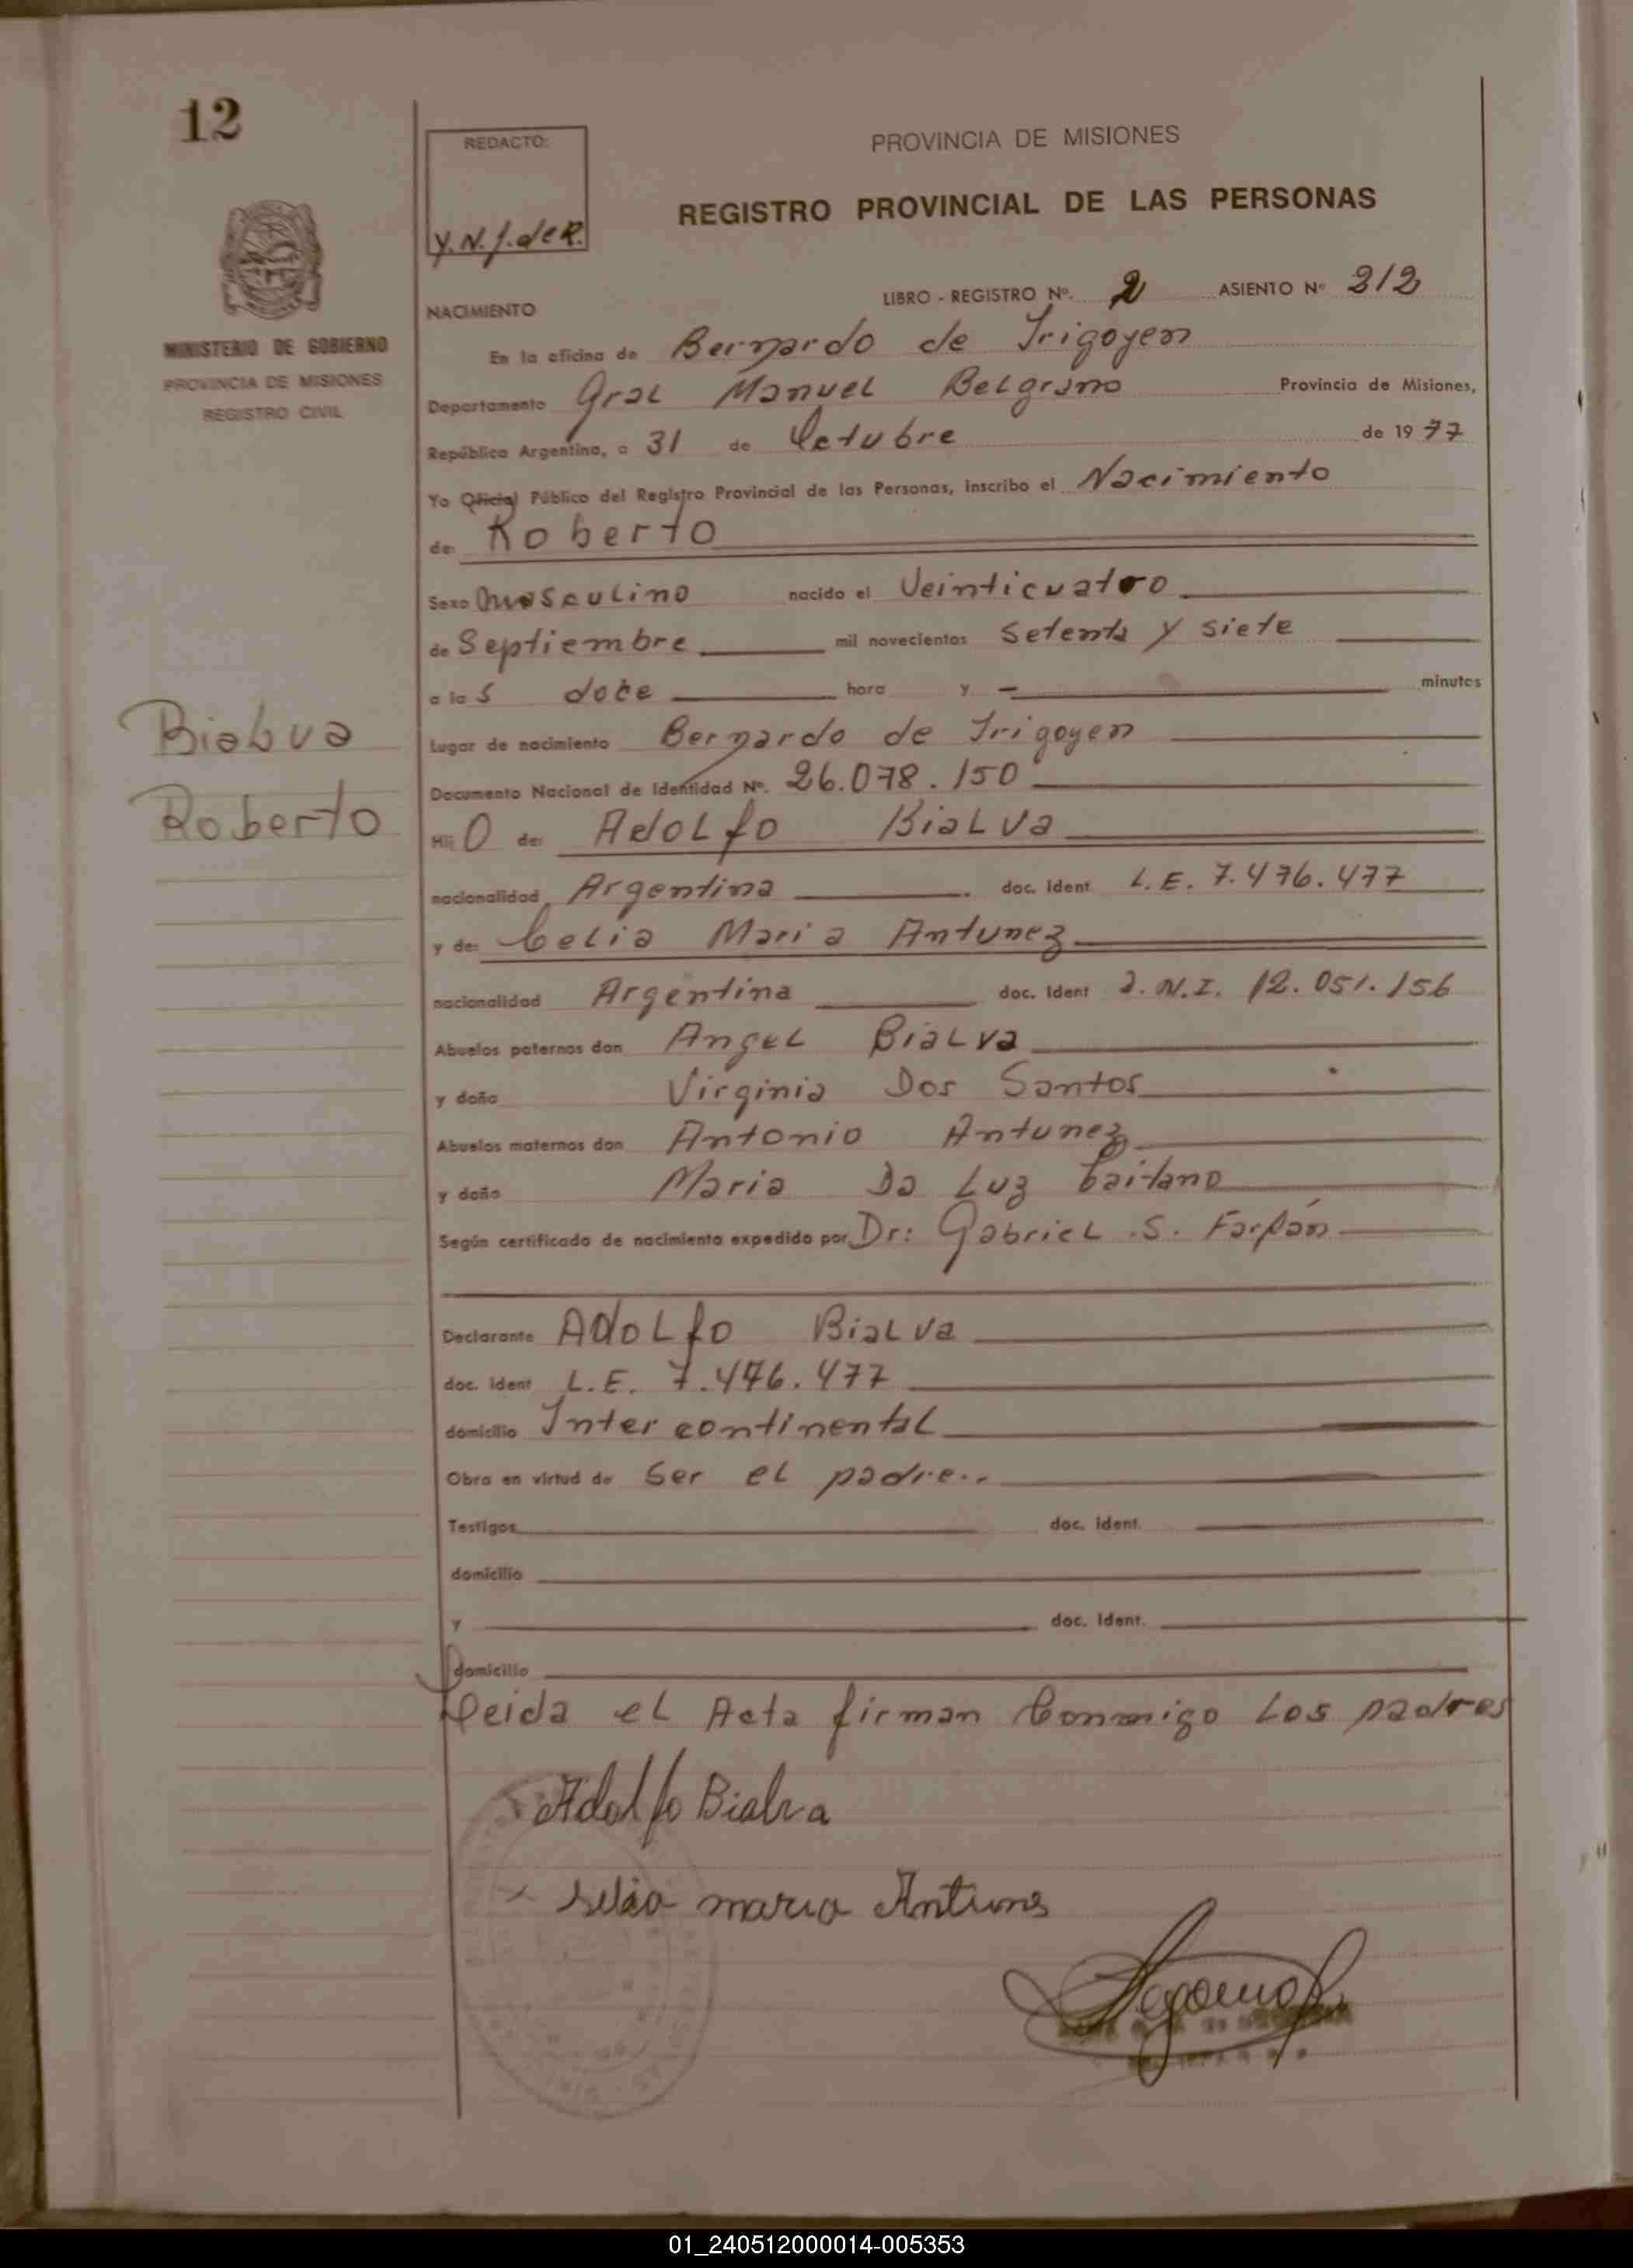 12
REDACTO:
Y.N.J.deR.
PROVINCIA DE MISIONES
REGISTRO PROVINCIAL DE LAS PERSONAS
MINISTERIO DE GOBIERNO
PROVINCIA DE MISIONES
REGISTRO CIVIL
NACIMIENTO
LIBRO - REGISTRO Nº. 2 ASIENTO Nº 212
En la oficina de Bernardo de Irigoyen
Departamento Gral Manuel Belgrano Provincia de Misiones,
República Argentina, a 31 de Octubre de 1977
Yo Oficial Público del Registro Provincial de las Personas, inscribo el Nacimiento
de: Roberto
Sexo Masculino nacido el Veinticuatro
de Septiembre mil novecientos setenta y siete
a las doce hora y — minutos
Lugar de nacimiento Bernardo de Irigoyen
Documento Nacional de Identidad Nº. 26.078.150
Hijo de: Adolfo Bialva
nacionalidad Argentina doc. Ident. L.E. 7.476.477
y de: Celia Maria Antunez
nacionalidad Argentina doc. Ident D.N.I. 12.051.156
Abuelos paternos don Angel Bialva
y doña Virginia Dos Santos
Abuelos maternos don Antonio Antunez
y doña Maria Da Luz Caitano
Según certificado de nacimiento expedido por Dr: Gabriel S. Farfán
Declarante Adolfo Bialva
doc. ident L.E. 7.476.477
domicilio Intercontinental
Obra en virtud de Ser el padre..
Testigos doc. ident.
domicilio
y doc. Ident.
domicilio
Leida el Acta firman Conmigo Los padres
Adolfo Bialva
maria Antunes
Bialva
Roberto
01_240512000014-005353